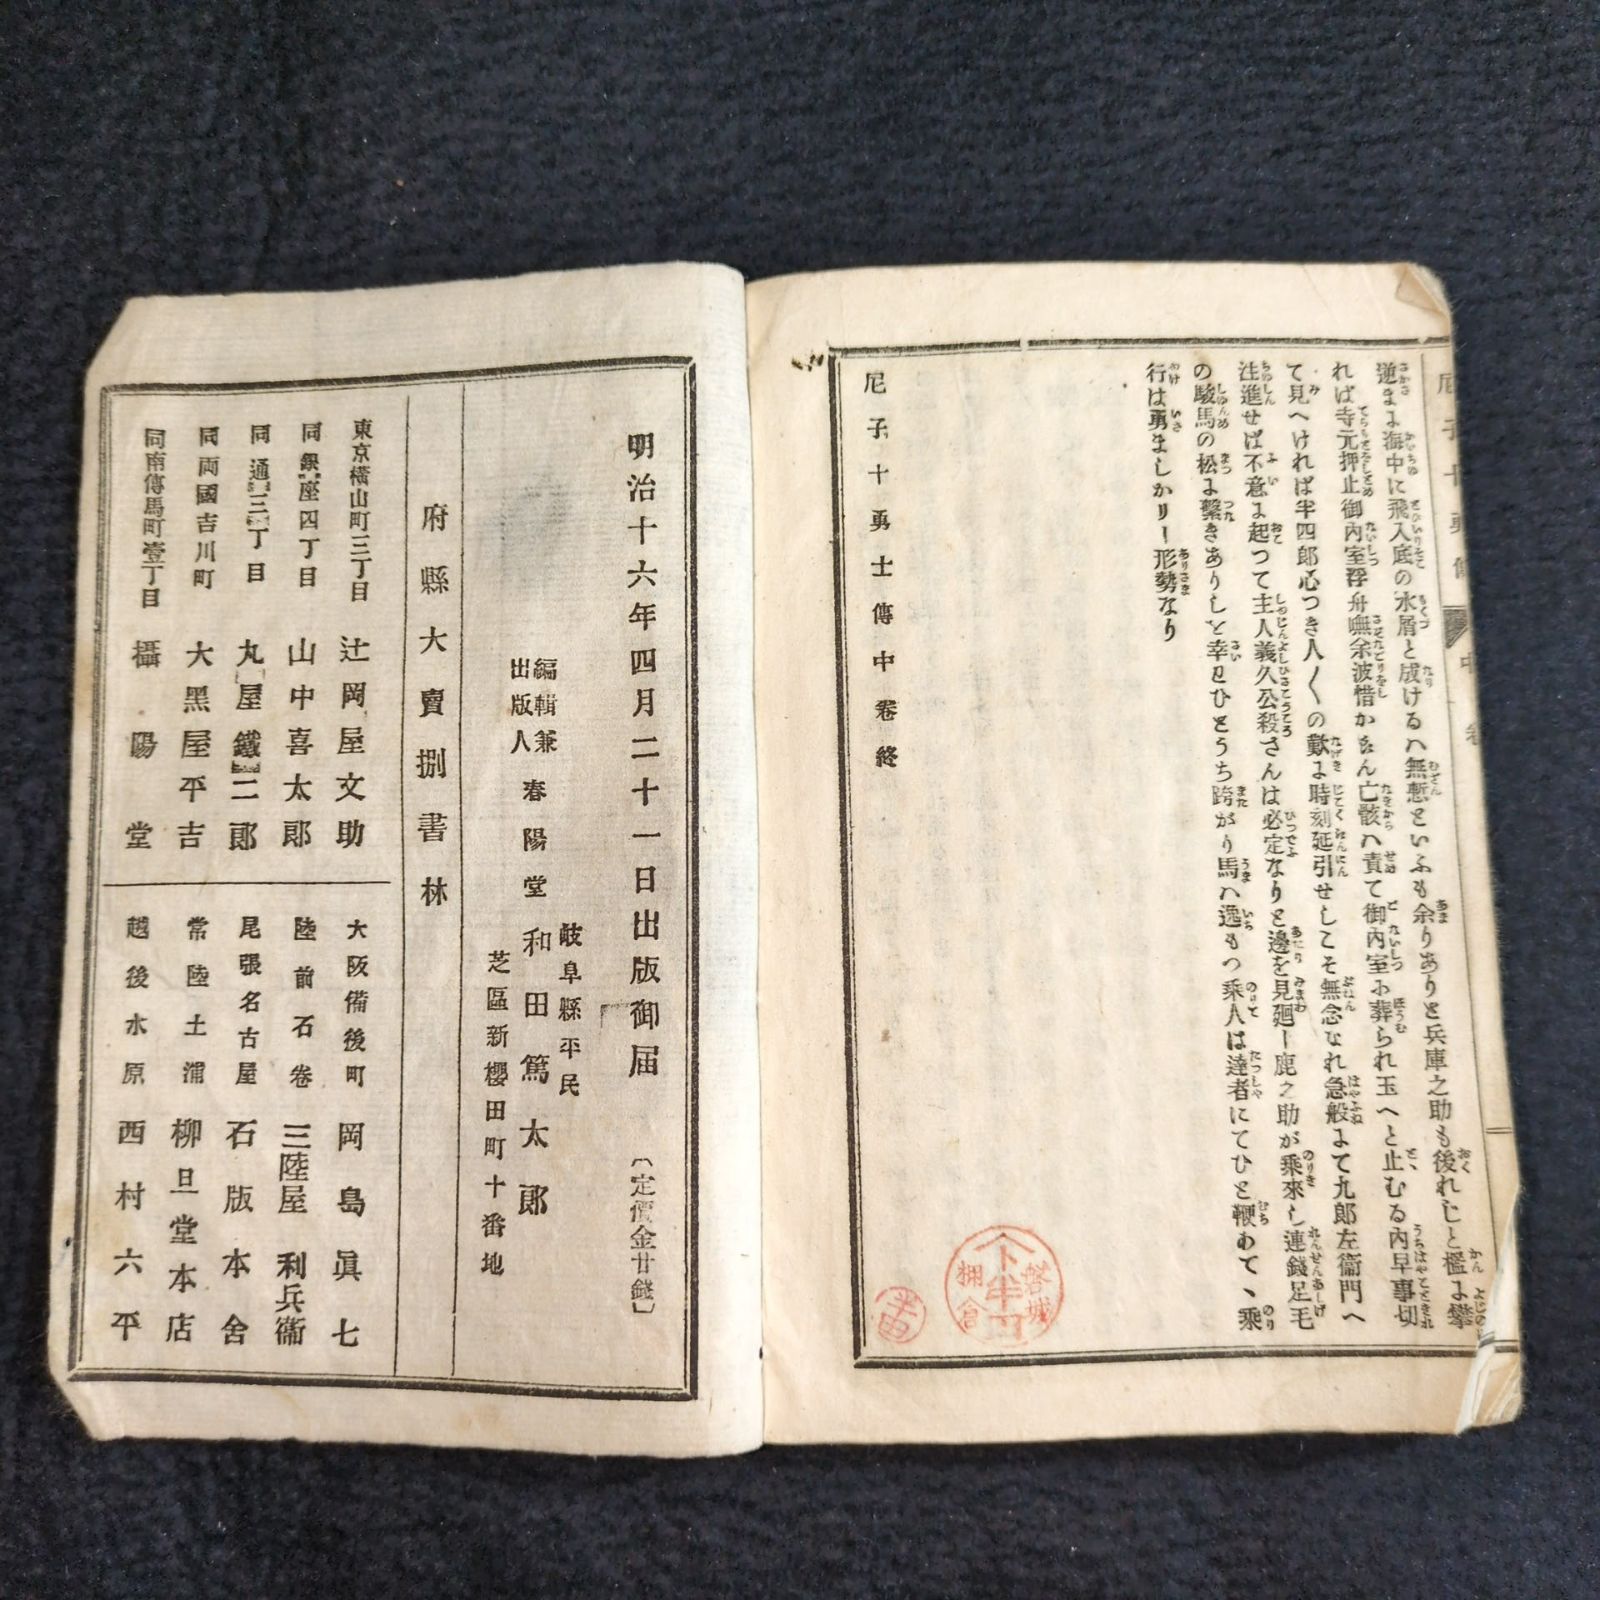 尼子十勇傳 中巻
逆まよ海中に飛入底の水屑と成けるハ無慙といふも余りありと兵庫之助も後れじと檻よ攀
れば寺元押止御内室浮舟嘸余波惜かるらん亡骸ハ責て御内室ふ葬られ玉へと止むる内早事切
て見へければ半四郎心つき人〱の歎よ時刻延引せしこそ無念なれ急般よて九郎左衞門へ
注進せば不意よ起つて主人義久公殺さんは必定なりと邊を見廻し鹿之助が乘來し連錢足毛
の駿馬の松よ繫きありしを幸ひひとうち跨がり馬ハ逸もつ乘人は達者にてひと鞭あて、乘
行は勇ましかりし形勢なり
尼子十勇士傳中卷終
磐城
棚倉
明治十六年四月二十一日出版御届
〔定價金廿錢〕
岐阜縣平民
編輯兼
出版人 春陽堂 和田篤太郎
芝區新櫻田町十番地
府縣大賣捌書林
東京橫山町三丁目 辻岡屋文助
同銀座四丁目 山中喜太郎
同通三丁目 丸屋鐵二郎
同両國吉川町 大黑屋平吉
同南傳馬町壹丁目 攝陽堂
大阪備後町 岡島眞七
陸前石卷 三陸屋利兵衞
尾張名古屋 石版本舍
常陸土浦 柳旦堂本店
越後水原 西村六平